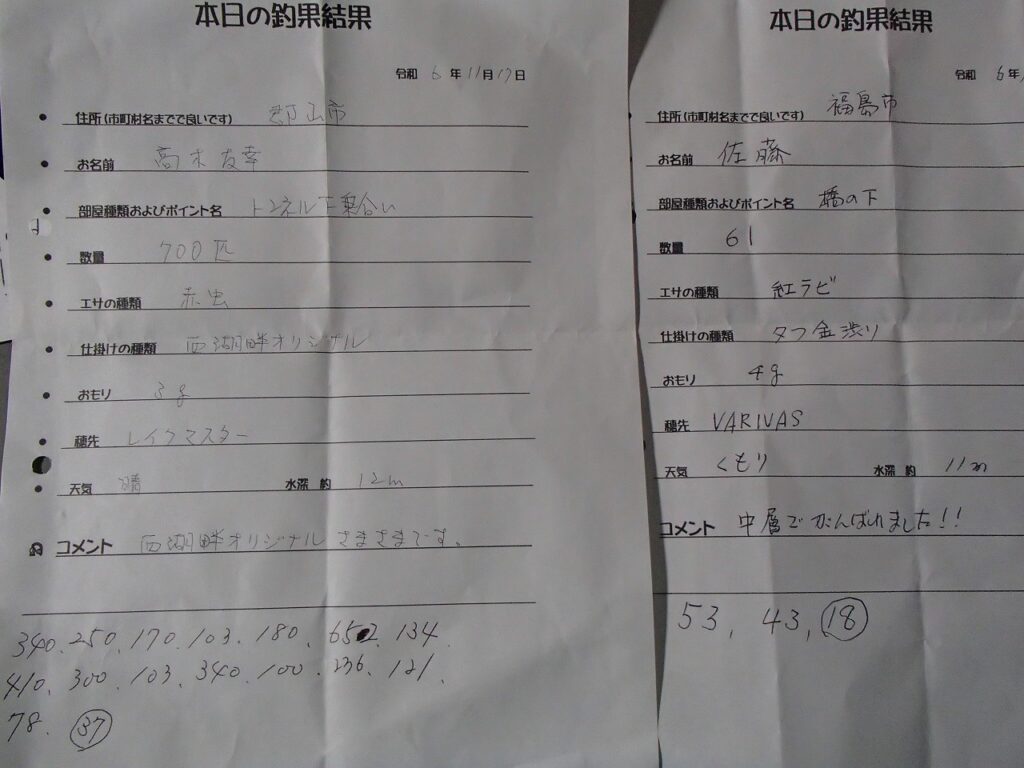 本日の釣果結果
令和 6 年 11 月 17 日
住所(市町村名までで良いです) 郡山市
お名前 高木友幸
部屋種類およびポイント名 トンネル下乗合い
数量 700匹
エサの種類 赤虫
仕掛けの種類 西湖畔オリジナル
おもり 3g
穂先 レイクマスター
天気 晴 水深 約 12m
コメント 西湖畔オリジナルさまさまです。
340、250、170、103、180、652、134、
410、300、103、340、100、236、121、
78、 37
本日の釣果結果
令和 6年
住所(市町材名までで良いです) 福島市
お名前 佐藤
部屋種類およびポイント名 橋の下
数量 61
エサの種類 紅ラビ
仕掛けの種類 タフ金渋り
おもり 4g
穂先 VARIVAS
天気 くもり 水深 約 11m
コメント 中層でがんばれました!!
53, 43, 18